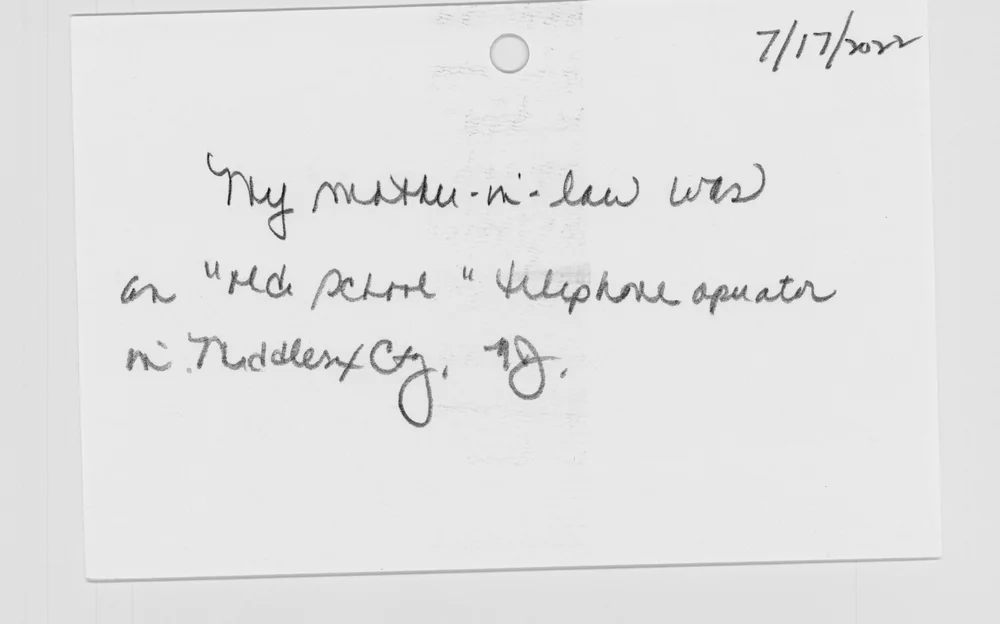 7/17/2022
My mother-in-law was
an "old school" telephone operator
in Middlesex Cty, NJ.